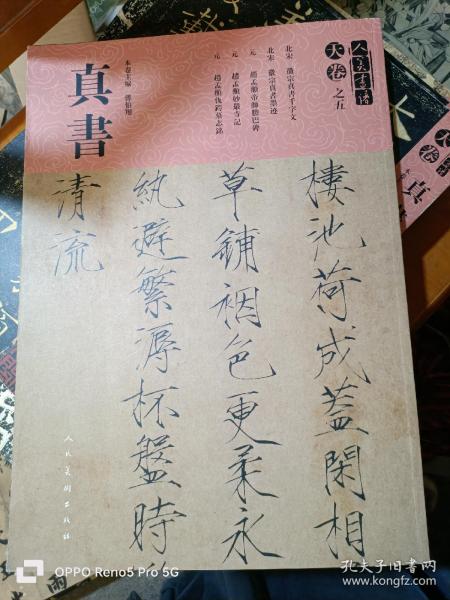 人美書譜
天卷之五
北宋 徽宗真書千字文
北宋 徽宗真書墨迹
元 趙孟頫帝師膽巴碑
元 趙孟頫妙嚴寺記
元 趙孟頫仇鍔墓志銘
本卷主編
真書
棲池荷成蓋閑相
草鋪裀色更柔永
紈避繁溽杯盤時
清流
人民美術出版社
天卷
真
OPPO Reno5 Pro 5G
孔夫子旧书网
www.kongfz.com